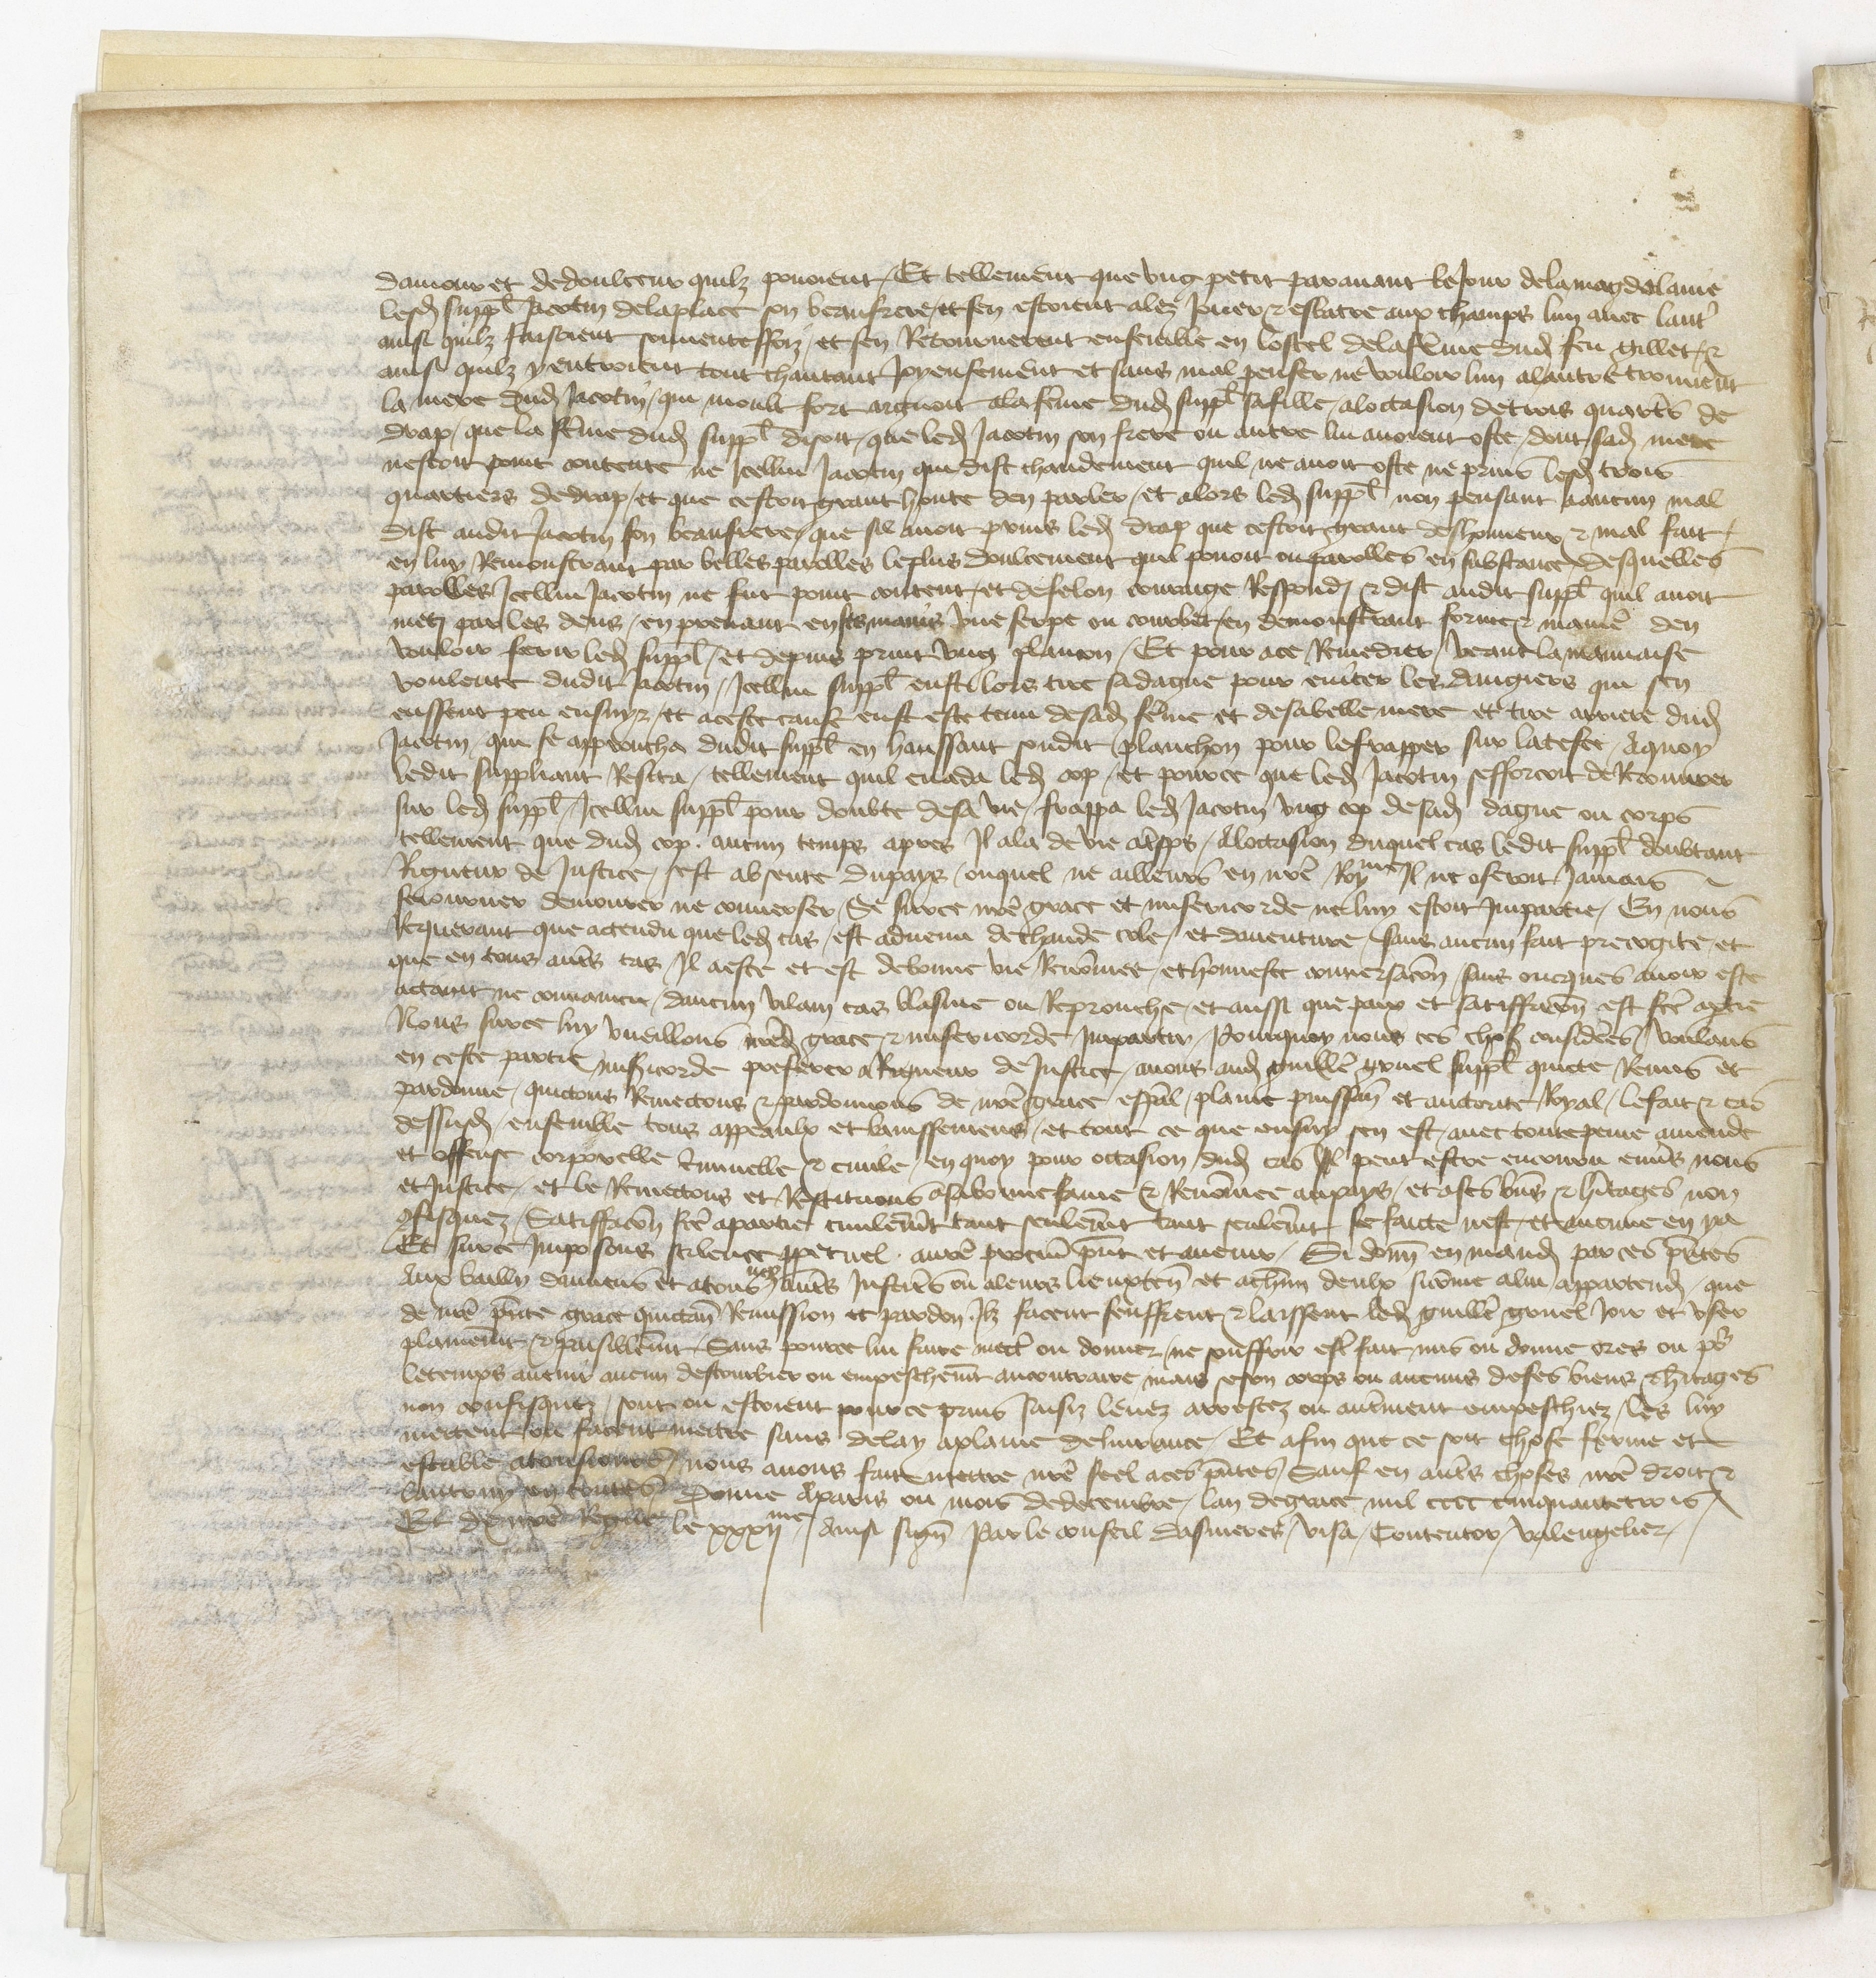 damour et de doulceur quilz povoient / Et tellement que ung petit paravant le Jour de la magdelaine
lesd suppl Jacotin delaplace son beaufrere et sen estoient alez Jouer & esbatre aux champs lun avec laut
ainsi quilz faisoient souventeffoiz / et sen Retournerent ensemble en lostel de la feme dud feu Gillet / &
ainsi quilz y entroient tout chantant Joyeusement et sans mal penser ne vouloir lun alautre trouverent
la mere dud Jacotin / qui moult fort arguoit ala feme dud suppl sa fille / aloccasion de trois quartiers de
drap / que la feme dud suppl disoit / que led Jacotin son frere ou autre lui avoient oste / dont sad mere
nestoit point contente ne Icellui Jacotin qui dist chaudement quil ne avoit oste ne prins lesd trois
quartiers de drap / et que cestoit grant honte den parler / et alors led suppl non pensant a aucun mal
dist audit Jacotin son beaufrere / que sil avoit prins led drap que cestoit grant deshonneur & mal fait /
en luy Remonstrant par belles parolles le plus doulcement quil povoit ou parolles en substance / desquelles
parolles Icellui Jacotin ne fut point content / et de felon courage Respond & dist audit suppl quil avoit
menty par les dens / en prenant en ses mains une serpe ou courbet / en demonstrant forme & maniere den
vouloir ferir led suppl / et depuis print ung plancon / Et pour a ce Remedier / veant la mauvaise
voulente dudit Jacotin / Icellui suppl eust lors tire sa dague pour eviter les dangiers qui sen
eussent peu ensuyr / et a ceste cause eust este tenu de sad feme et de sa belle mere et tire arriere dud
Jacotin / qui se approucha dudit suppl en haussant sondit planchon pour le frapper sur la teste / Aquoy
ledit suppliant Resista / tellement quil evada led cop / et pour ce que led Jacotin sefforcoit de Recouvrer
sur led suppl / Icellui suppl pour doubte de sa vie / frappa led Jacotin ung cop de sad dague ou corps
tellement que dud cop aucun temps apres Il ala de vie a trespas / Aloccasion duquel cas ledit suppl doubtant
Rigueur de Justice / sest absente du pays / ouquel ne ailleurs en nre Royme Il ne oseroit Jamais
sejourner demourer ne converser / Se sur ce nre grace et misericorde ne luy estoit Impartie / En nous
Requerant que actendu que led cas / est advenu de chaude cole / et daventure / sans aucun fait precogite / et
que en tous autres cas Il a este et est de bonne vie Renommee / et honneste conversacion / sans oncques avoir este
actaint ne convaincu daucun vilain cas blasme ou Reprouche / et aussi que paix et satisffacion est fte a ptie
Nous sur ce luy vueillons nred grace & misericorde Impartir / Pourquoy nous ces choses considerees / voulans
en ceste partie misericorde preferer a Rigueur de Justice / avons aud guille gruel suppl quicte Remis et
pardonne / quictons Remectons & pardonnons de nre grace espal / plaine puissance et auctorite Royal / le fait & cas
dessusd / ensemble tous appeaulx et bannissemens / et tout ce que ensuy sen est / avec toute peine amende
et offense corporelle criminelle & civile / en quoy pour occasion dud cas Il peut estre encouru envers nous
et Justice / et le Remectons et Restituons a sa bonne fame & Renommee au pays / et a ses biens & heritages non
confisquez / Satisffacion fte a partie civilement tant seulement tant seulement se faicte nest / et aucune en y a
Et sur ce Imposons scilence perpetuel a nre procureur present et avenir / Si donn en mand par ces presentes
Aux bailly damiens et a tous noz autres Justiciers ou a leurs lieuxten et a chun deulx si come a lui appartendra / que
de nre presente grace quictance Remission et pardon Ilz facent seuffrent & laissent led guille gruel Joir et user
plainement & paisiblement / Sans pour ce lui faire mectre ou donner / ne souffrir estre fait mis ou donne ores ou pour
le temps avenir aucun destourbier ou empeschement au contraire / mais se son corps ou aucuns de ses biens & heritages
non confisquez / sont ou estoient pour ce prins saisiz levez arrestez ou autrement empeschiez / les luy
mectent ou facent mectre sans delay a plaine delivrance / Et afin que ce soit chose ferme et
estable a tousjours / nous avons fait mettre nre scel a ces presentes / Sauf en autres choses nre droit &
lautruy en toutes / Donne A paris ou mois de decembre / lan de grace mil cccc cinquante trois
Et de nre Regne le xxxii me / Ainsi signe Par le conseil dasnieres / visa / Contentor / Valengelier /